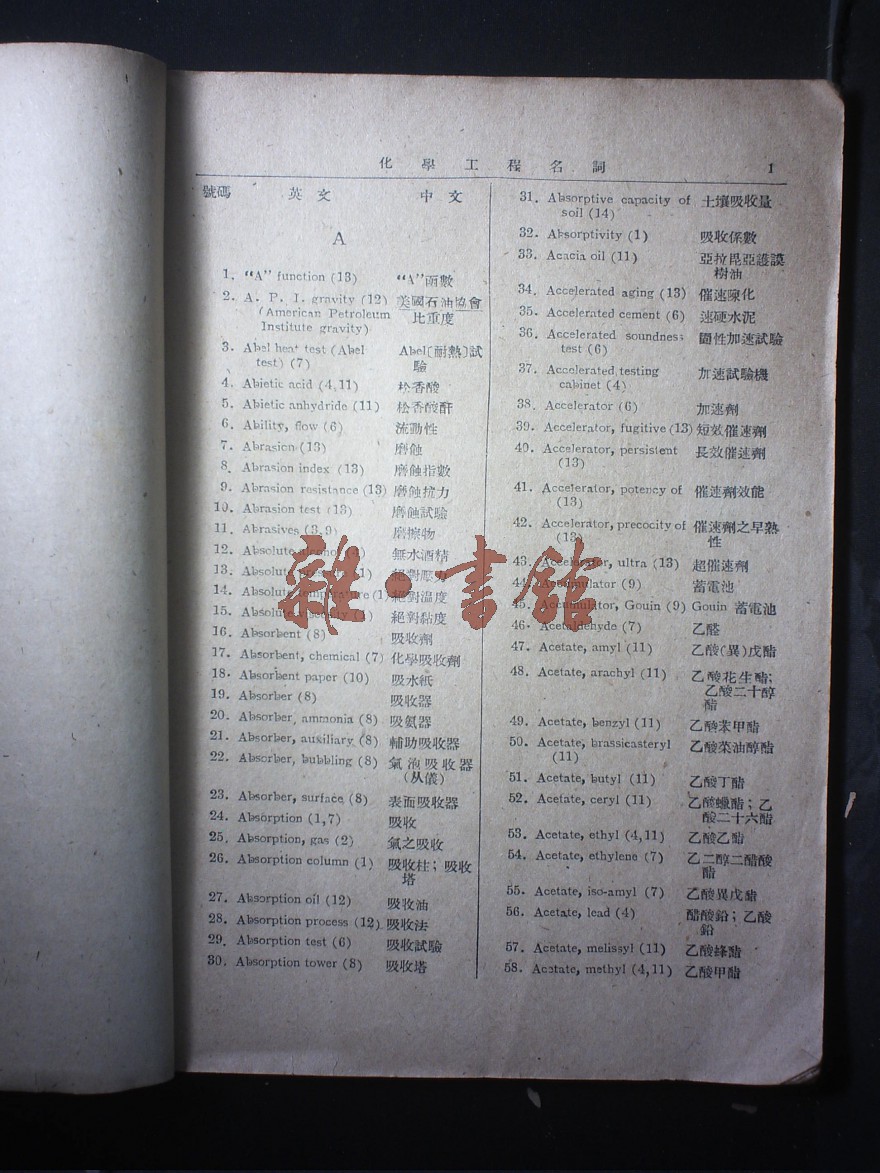 化學工程名詞 1
號碼 英文 中文
A
1. “A” function (13) “A”函數
2. A. P. I. gravity (12) 美國石油協會
(American Petroleum 比重度
Institute gravity)
3. Abel heat test (Abel Abel〔耐熱〕試
test) (7) 驗
4. Abietic acid (4,11) 松香酸
5. Abietic anhydride (11) 松香酸酐
6. Ability, flow (6) 流動性
7. Abrasion (13) 磨蝕
8. Abrasion index (13) 磨蝕指數
9. Abrasion resistance (13) 磨蝕抗力
10. Abrasion test (13) 磨蝕試驗
11. Abrasives (3,9) 磨擦物
12. Absolute alcohol (4) 無水酒精
13. Absolute pressure (1) 絕對壓力
14. Absolute temperature (1) 絕對温度
15. Absolute viscosity (1) 絕對黏度
16. Absorbent (8) 吸收劑
17. Absorbent, chemical (7) 化學吸收劑
18. Absorbent paper (10) 吸水紙
19. Absorber (8) 吸收器
20. Absorber, ammonia (8) 吸氨器
21. Absorber, auxiliary (8) 輔助吸收器
22. Absorber, bubbling (8) 氣泡吸收器
(从儀)
23. Absorber, surface (8) 表面吸收器
24. Absorption (1,7) 吸收
25. Absorption, gas (2) 氣之吸收
26. Absorption column (1) 吸收柱；吸收
塔
27. Absorption oil (12) 吸收油
28. Absorption process (12) 吸收法
29. Absorption test (6) 吸收試驗
30. Absorption tower (8) 吸收塔
31. Absorptive capacity of 土壤吸收量
soil (14)
32. Absorptivity (1) 吸收係數
33. Acacia oil (11) 亞拉毘亞護謨
樹油
34. Accelerated aging (13) 催速陳化
35. Accelerated cement (6) 速硬水泥
36. Accelerated soundness 固性加速試驗
test (6)
37. Accelerated testing 加速試驗機
cabinet (4)
38. Accelerator (6) 加速劑
39. Accelerator, fugitive (13) 短效催速劑
40. Accelerator, persistent 長效催速劑
(13)
41. Accelerator, potency of 催速劑效能
(13)
42. Accelerator, precocity of 催速劑之早熟
(13) 性
43. Accelerator, ultra (13) 超催速劑
44. Accumulator (9) 蓄電池
45. Accumulator, Gouin (9) Gouin 蓄電池
46. Acetaldehyde (7) 乙醛
47. Acetate, amyl (11) 乙酸(異)戊酯
48. Acetate, arachyl (11) 乙酸花生酯；
乙酸二十醇
酯
49. Acetate, benzyl (11) 乙酸苯甲酯
50. Acetate, brassicasteryl 乙酸菜油醇酯
(11)
51. Acetate, butyl (11) 乙酸丁酯
52. Acetate, ceryl (11) 乙酸蠟酯；乙
酸二十六酯
53. Acetate, ethyl (4,11) 乙酸乙酯
54. Acetate, ethylene (7) 乙二醇二醋酸
酯
55. Acetate, iso-amyl (7) 乙酸異戊酯
56. Acetate, lead (4) 醋酸鉛；乙酸
鉛
57. Acetate, melissyl (11) 乙酸蜂酯
58. Acetate, methyl (4,11) 乙酸甲酯
雜·書館